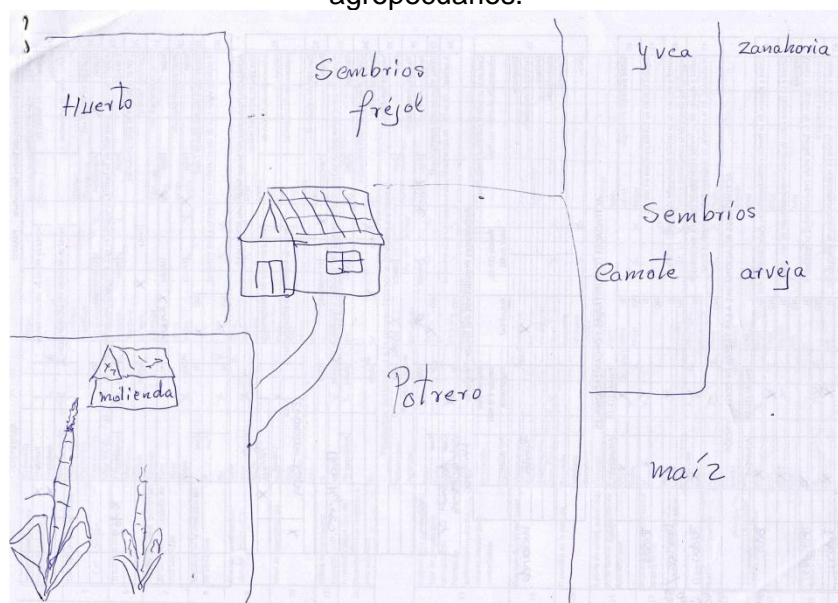 agropecuarios.
Huerto
Sembrios
fréjol
yuca
zanahoria
Sembrios
Camote
arveja
molienda
Potrero
maíz